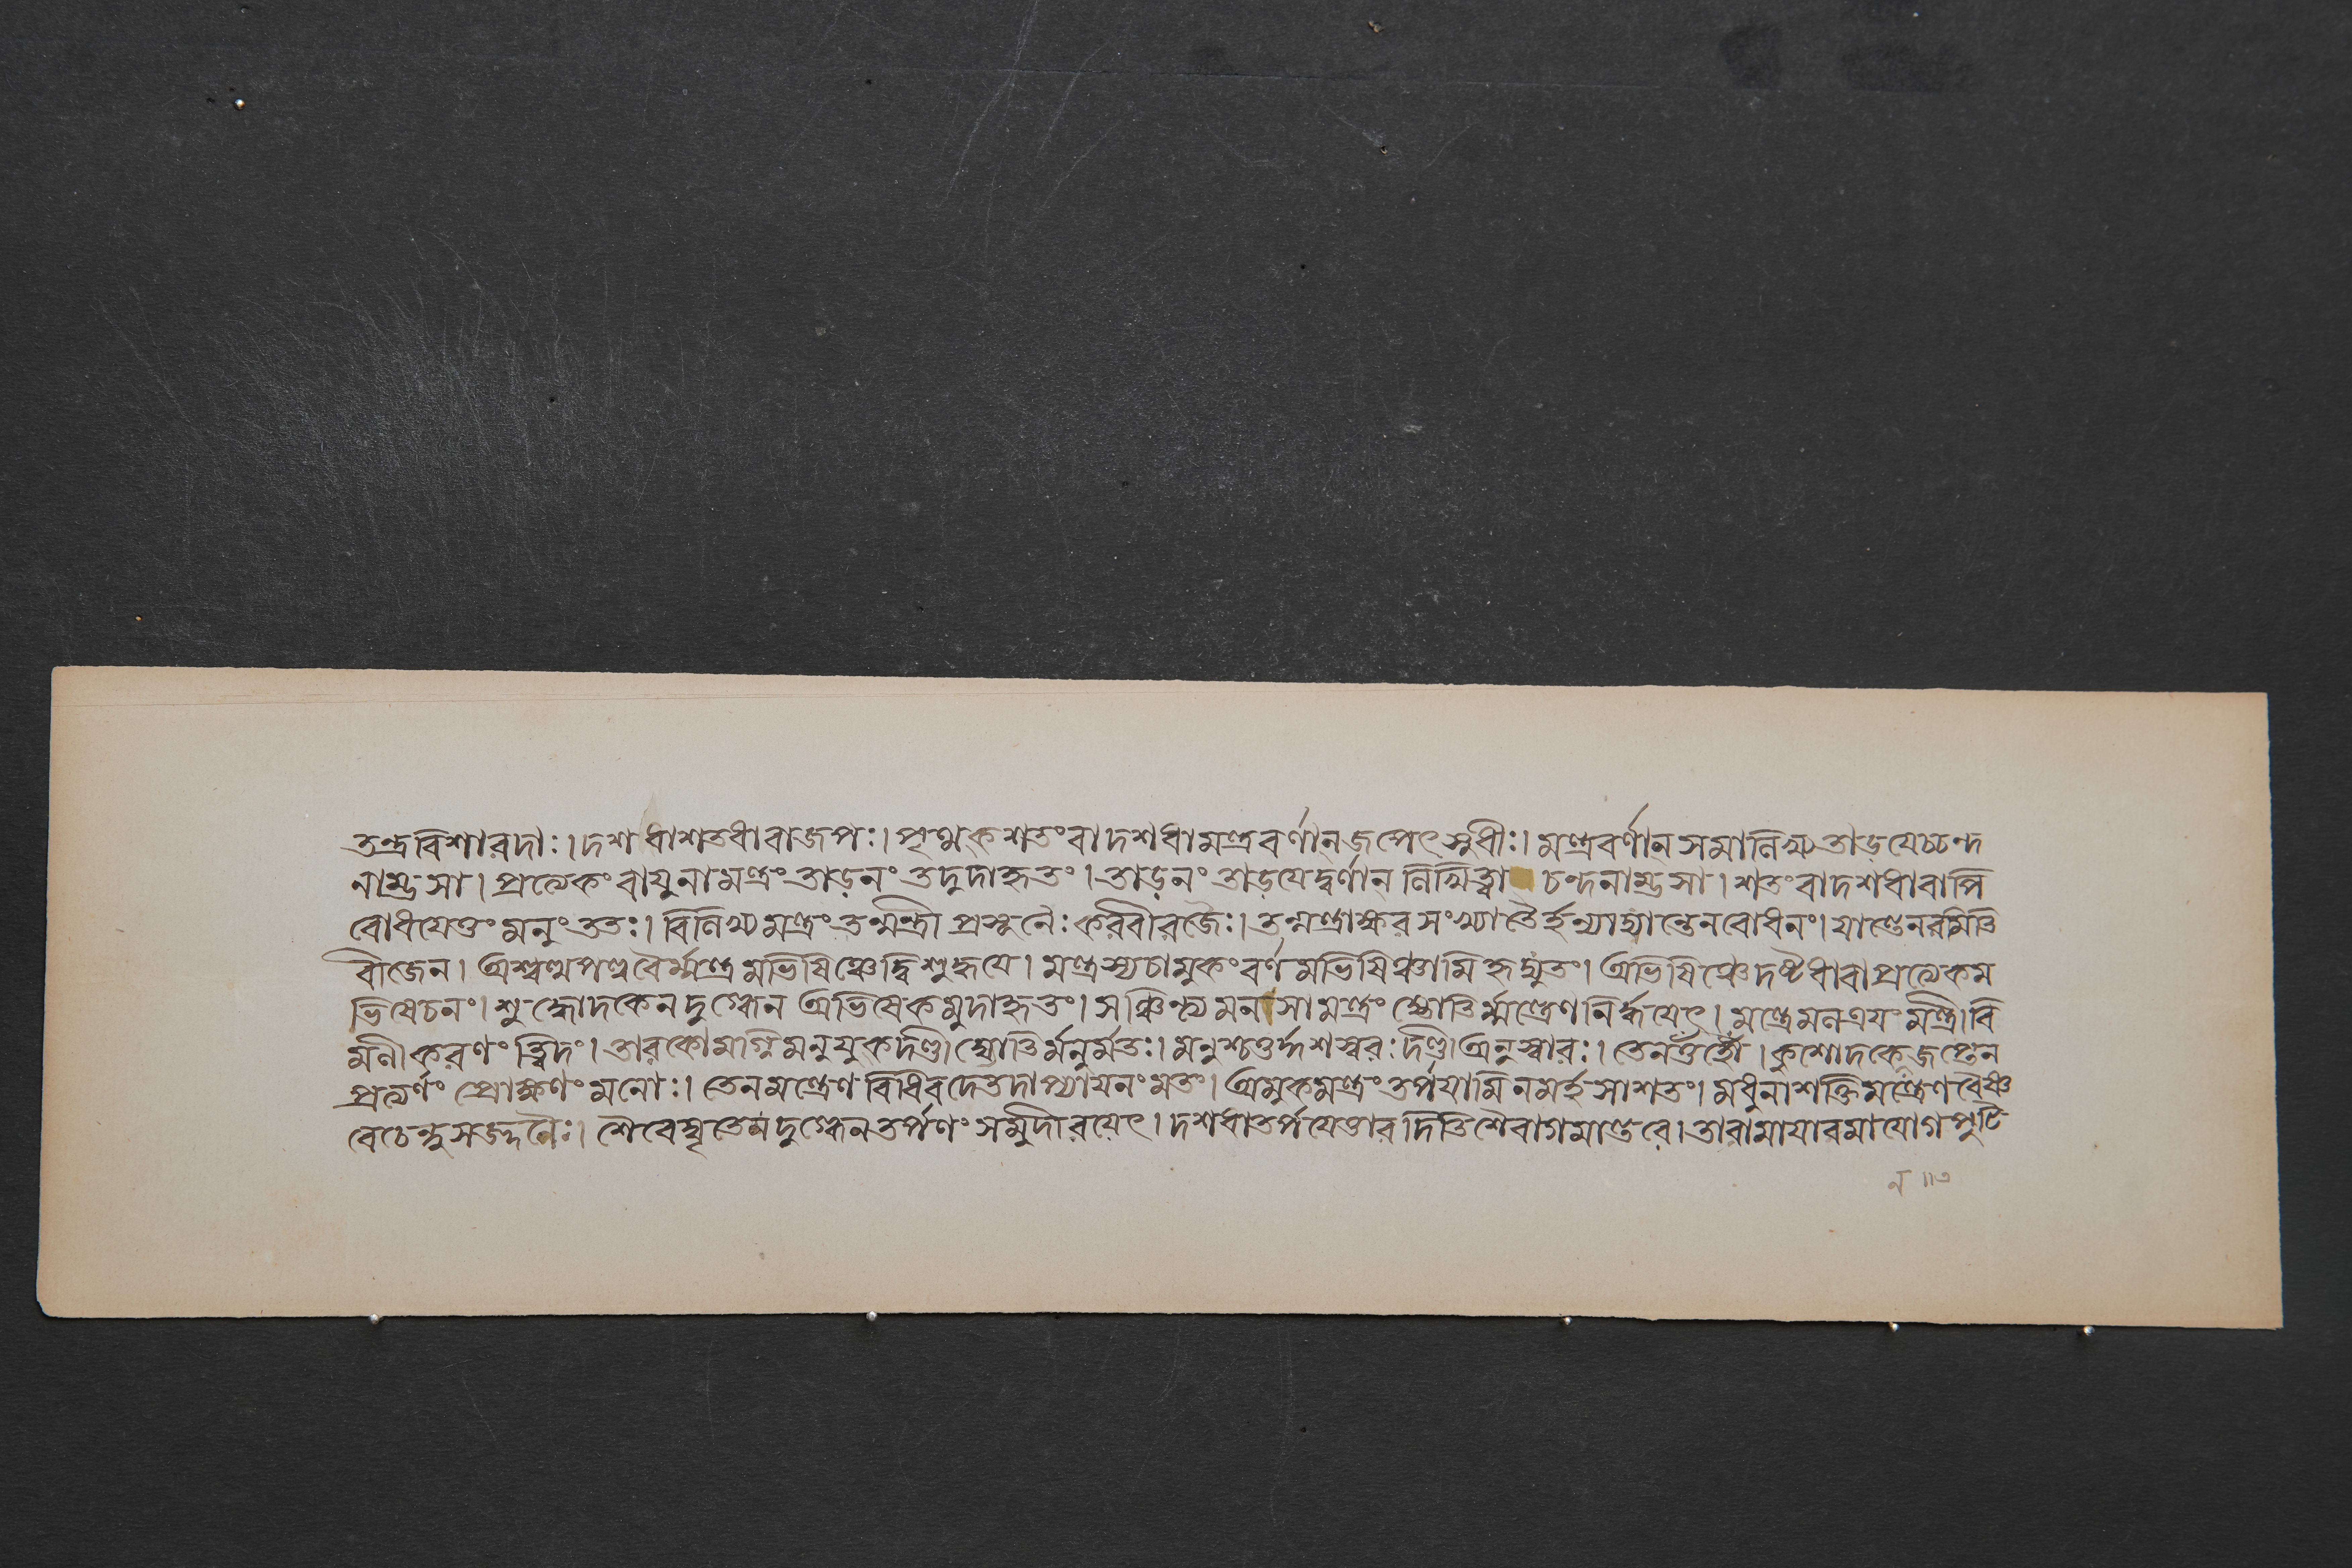 তন্ত্রবিশারদাঃ। দশধাশতধাবাজপঃ। পৃথক শতংবা দশধামন্ত্রবর্ণানজপেৎসুধীঃ। মন্ত্রবর্ণান সমালিখ্য তাড়যেচ্চন্দ
নাম্ভসা। প্রত্যেকং বাযুনামন্ত্রং তাড়নং তদুদাহৃতং। তাড়নং তাড়যেদ্বর্ণান লিখিত্বা চন্দনাম্ভসা। শতংবাদশধাবাপি
বোধযেত্তং মনুং ততঃ। বিলিখ্য মন্ত্রং তন্মন্ত্রী প্রসূনৈঃ করবীরজৈঃ। তন্মন্ত্রাক্ষর সংখ্যাতৈর্হন্যাদ্যান্তেনবোধনং। যান্তেনরমিতি
বীজেন। অশ্বত্থপল্লবৈর্ম্মন্ত্রমভিষিঞ্চেদ্বিশুদ্ধযে। মন্ত্রস্যচামুকং বর্ণমভিষিঞ্চামি হৃদ্যুতং। অভিষিঞ্চেদষ্টধাবাপ্রত্যেকম
ভিষেচনং। শুদ্ধোদকেন দুগ্ধেন অভিষেকমুদাহৃতং। সঞ্চিন্ত্য মনসামন্ত্রং জ্যোতির্ম্মন্ত্রেণ নির্দ্দহেৎ। মন্ত্রেমলত্রযং মন্ত্রী বি
মলীকরণং ত্বিদং। তারব্যোমাগ্নিমনুযুকদণ্ডী জ্যোতির্মনুর্মতঃ। মনুশ্চতুর্দ্দশস্বরঃ দণ্ডী অনুস্বারঃ। তেন ওঁ হ্রৌঁ। কুশোদকে জপ্তেন
প্রত্যর্ণং প্রোক্ষণং মনোঃ। তেনমন্ত্রেণ বিধিবদেতদাপ্যাযনংমতং। অমুকমন্ত্রং তর্পযামি নমঃ শতং। মধুনাশক্তিমন্ত্রেণ বৈষ্ণ
বেচেন্দুসজ্জলৈঃ। শৈবেঘৃতেন দুগ্ধেন তর্পণং সমুদীরযেৎ। দশধাতর্পযেত্তার দিতি শৈবাগমান্তরে। তারামাযারমাযোগ পুটি